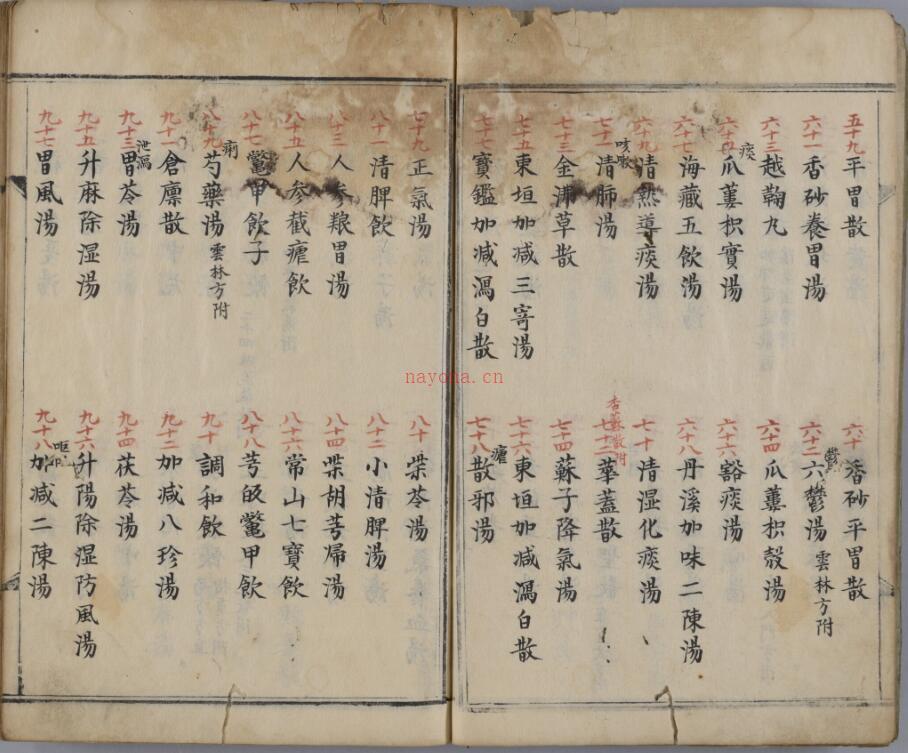 五十九 平胃散
六十 香砂平胃散
六十一 香砂養胃湯
鬱 六十二 六鬱湯 雲林方附
六十三 越鞠丸
六十四 瓜蔞枳殼湯
痰 六十五 瓜蔞枳實湯
六十六 豁痰湯
六十七 海藏五飲湯
六十八 丹溪加味二陳湯
六十九 清熱導痰湯
七十 清湿化痰湯
咳嗽 七十一 清肺湯
七十二 華蓋散 香蘇散附
七十三 金沸草散
七十四 蘇子降氣湯
七十五 東垣加减三竒湯
七十六 東垣加减瀉白散
七十七 寶鑑加减瀉白散
瘧 七十八 散邪湯
七十九 正氣湯
八十 柴苓湯
八十一 清脾飲
八十二 小清脾湯
八十三 人参粮胃湯
八十四 柴胡芎歸湯
八十五 人参截瘧飲
八十六 常山七寶飲
八十七 鱉甲飲子
八十八 芎皈鱉甲飲
痢 八十九 芍藥湯 雲林方附
九十 調和飲
九十一 倉廪散
九十二 加减八珍湯
泄瀉 九十三 胃苓湯
九十四 茯苓湯
九十五 升麻除湿湯
九十六 升陽除湿防風湯
九十七 胃風湯
九十八 加减二陳湯
nayona.cn